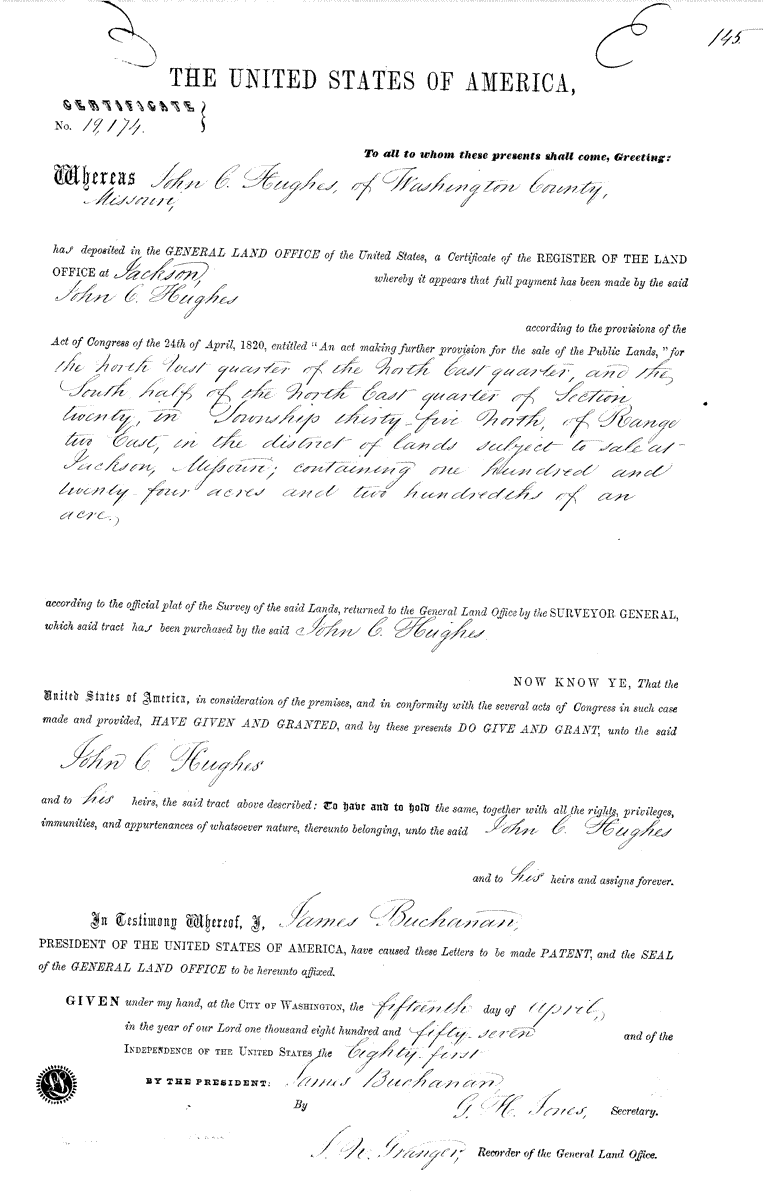 145.
THE UNITED STATES OF AMERICA,
CERTIFICATE
No. 19,174.
To all to whom these presents shall come, Greeting:
Whereas John C. Hughes, of Washington County,
Missouri,
has deposited in the GENERAL LAND OFFICE of the United States, a Certificate of the REGISTER OF THE LAND
OFFICE at Jackson, whereby it appears that full payment has been made by the said
John C. Hughes
according to the provisions of the
Act of Congress of the 24th of April, 1820, entitled "An act making further provision for the sale of the Public Lands," for
the North West quarter of the North East quarter, and the
South half of the North East quarter of Section
twenty, in Township thirty-five North, of Range
two East, in the district of lands subject to sale at
Jackson, Missouri; containing one hundred and
twenty-four acres and two hundredths of an
acre,
according to the official plat of the Survey of the said Lands, returned to the General Land Office by the SURVEYOR GENERAL,
which said tract has been purchased by the said John C. Hughes
NOW KNOW YE, That the
United States of America, in consideration of the premises, and in conformity with the several acts of Congress in such case
made and provided, HAVE GIVEN AND GRANTED, and by these presents DO GIVE AND GRANT, unto the said
John C. Hughes
and to his heirs, the said tract above described: To have and to hold the same, together with all the rights, privileges,
immunities, and appurtenances of whatsoever nature, thereunto belonging, unto the said John C. Hughes
and to his heirs and assigns forever.
In Testimony Whereof, I, James Buchanan,
PRESIDENT OF THE UNITED STATES OF AMERICA, have caused these Letters to be made PATENT, and the SEAL
of the GENERAL LAND OFFICE to be hereunto affixed.
GIVEN under my hand, at the CITY OF WASHINGTON, the fifteenth day of April,
in the year of our Lord one thousand eight hundred and fifty-seven and of the
INDEPENDENCE OF THE UNITED STATES the Eighty-first
BY THE PRESIDENT: James Buchanan
By G. H. Jones, Secretary.
J. N. Granger, Recorder of the General Land Office.